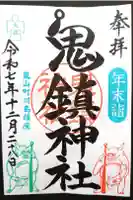 奉拝
年末詣
鬼鎮神社
令和七年十二月二十八日